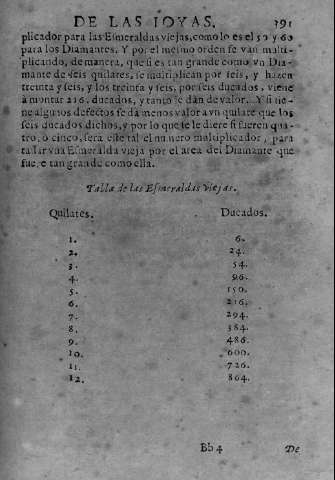 DE LAS JOYAS. 191
plicador para las Esmeraldas viejas, como lo es el 50 y 60
para los Diamantes. Y por el mesmo orden se van multi-
plicando, de manera, que si es tan grande como vn Dia
mante de seis quilates, se multiplican por seis, y hazen
treinta y seis, y los treinta y seis, por seis ducados, viene
à montar 216. ducados, y tanto se dàn de valor. Y si tie-
ne algunos defectos se dà menos valor a vn quilate que los
seis ducados dichos, y por lo que se le diere si fueren qua-
tro, ò cinco, sera este tal el numero multiplicador, para
tassar vna Esmeralda vieja por el area del Diamante que
fuere tan grande como ella.
Tabla de las Esmeraldas viejas.
Quilates. Ducados.
1. 6.
2. 24.
3. 54.
4. 96.
5. 150.
6. 216.
7. 294.
8. 384.
9. 486.
10. 600.
11. 726.
12. 864.
Bb 4 De